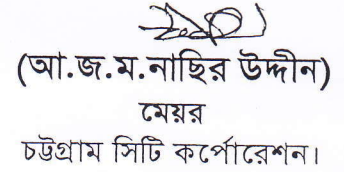 (আ.জ.ম.নাছির উদ্দীন)
মেয়র
চট্টগ্রাম সিটি কর্পোরেশন।